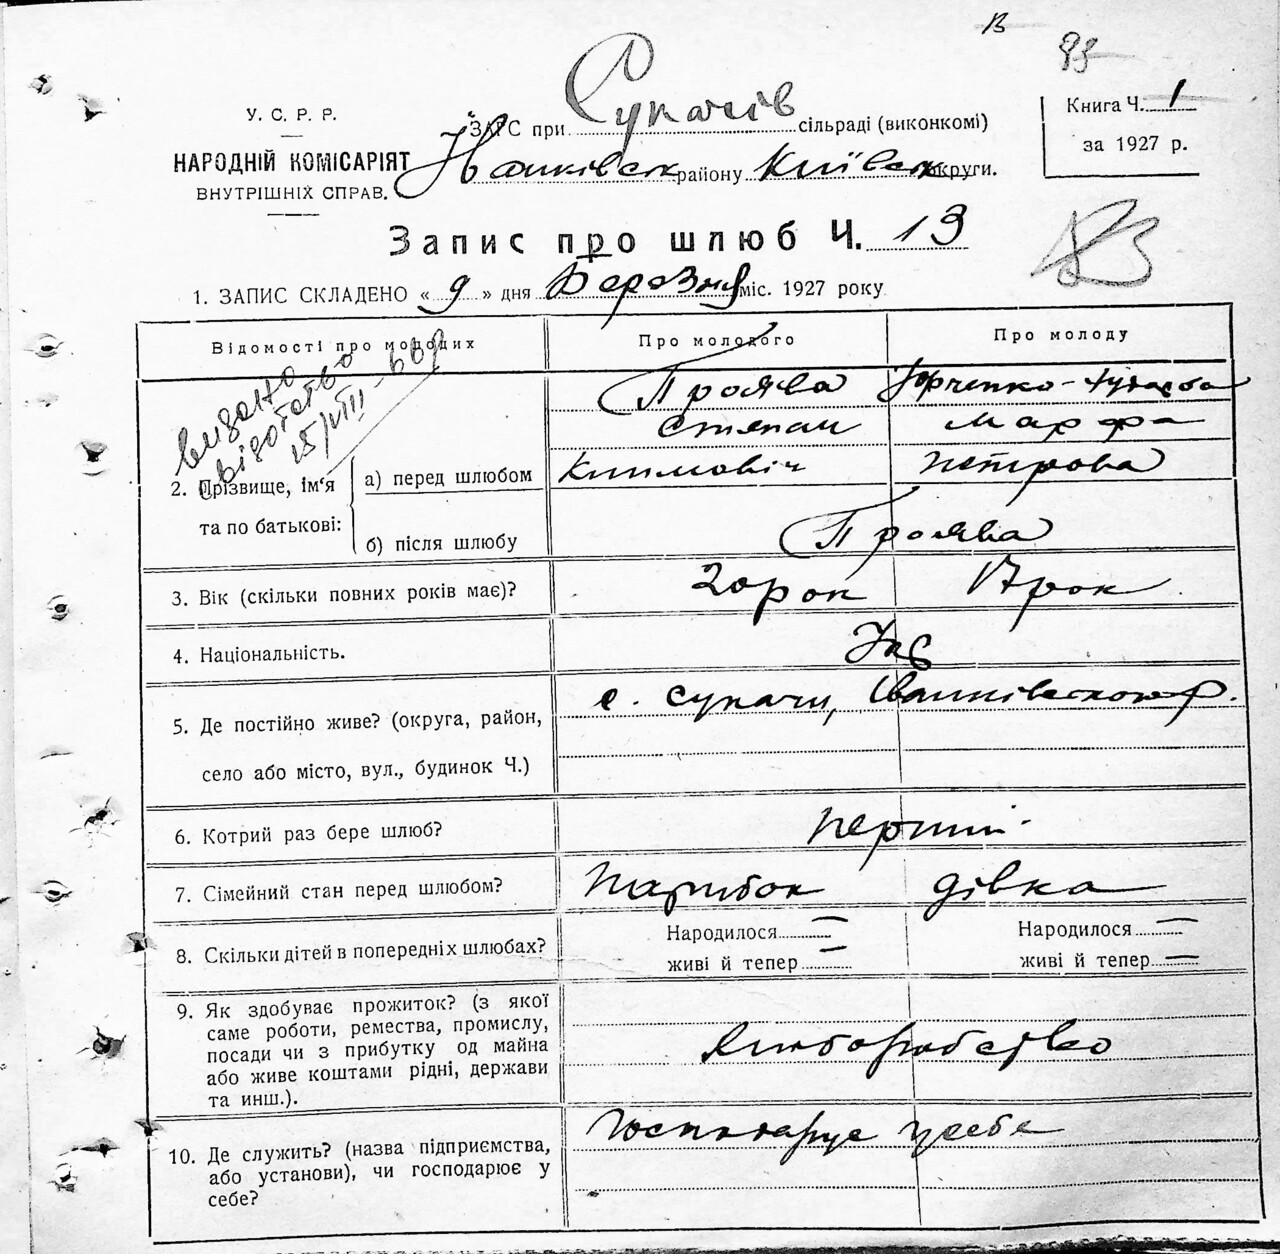 93
У. С. Р. Р.
НАРОДНІЙ КОМІСАРІЯТ
ВНУТРІШНІХ СПРАВ.
ЗАГС при Сукачів сільраді (виконкомі)
району Київськ округи.
Книга Ч. 1
за 1927 р.
Запис про шлюб Ч. 13
1. ЗАПИС СКЛАДЕНО « 9 » дня Березня міс. 1927 року
Відомості про молодих
Про молодого
Про молоду
видано
свідотство
15/VIII-66р
2. Прізвище, ім'я
та по батькові:
а) перед шлюбом
Проява
Степан
Климовіч
Юрченко-
Марфа
Петрова
б) після шлюбу
Проява
3. Вік (скільки повних років має)?
20 рок
17 рок
4. Національність.
Укр
5. Де постійно живе? (округа, район,
село або місто, вул., будинок Ч.)
с. Сукачи, Іванківського р.
6. Котрий раз бере шлюб?
перший
7. Сімейний стан перед шлюбом?
Парубок
дівка
8. Скільки дітей в попередніх шлюбах?
Народилося —
живі й тепер —
Народилося —
живі й тепер —
9. Як здобуває прожиток? (з якої
саме роботи, ремества, промислу,
посади чи з прибутку од майна
або живе коштами рідні, держави
та инш.).
Хліборобство
10. Де служить? (назва підприємства,
або установи), чи господарює у
себе?
Господарує у себе